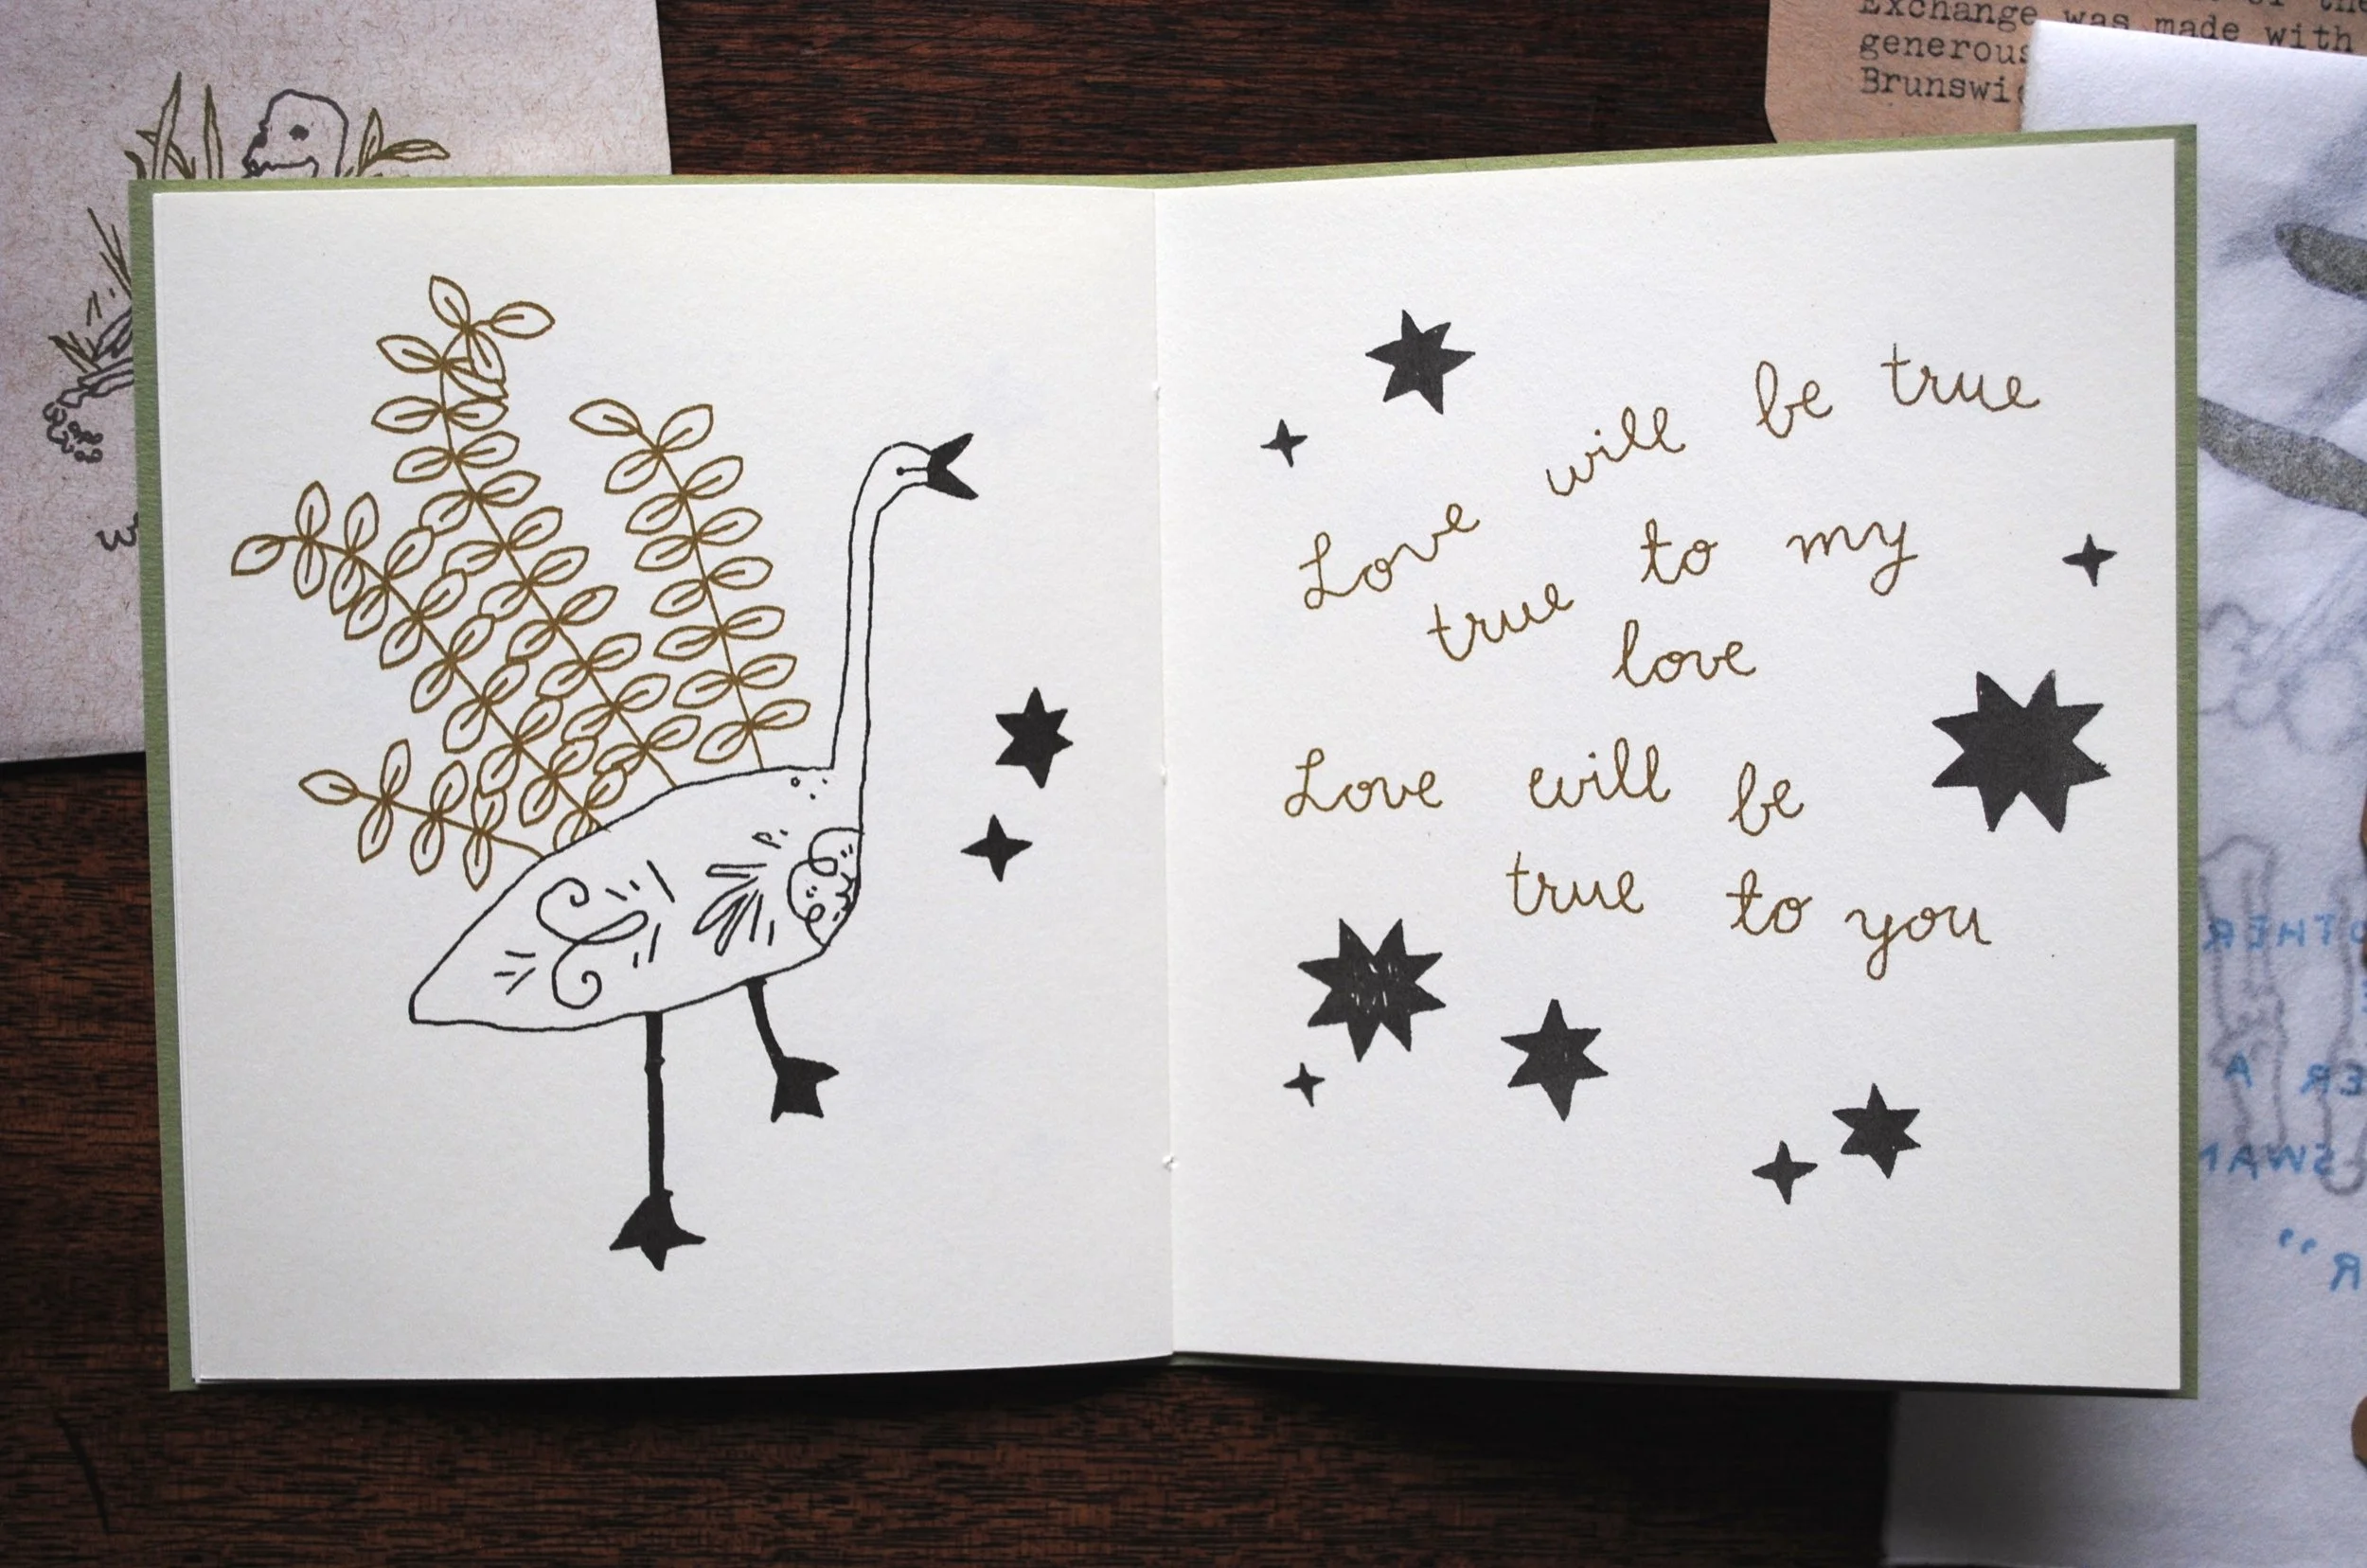 Exchange was made with
generous
Love will be true
true to my
love
Love will be
true to you
OTHER
ER A
SWAN
R"